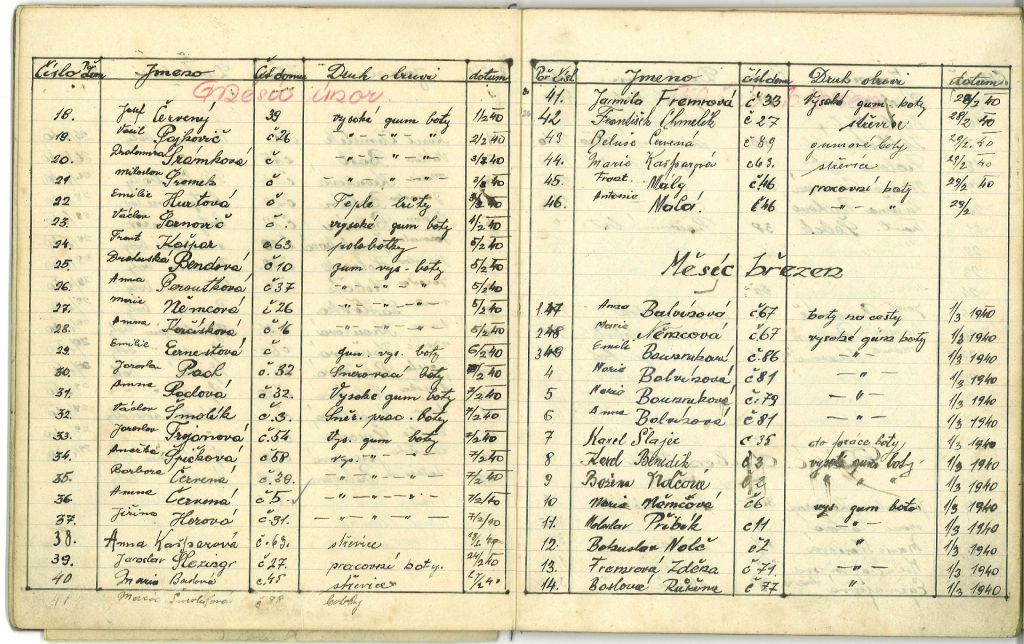 Číslo Jmeno Čís domu Druh obuvi datum
Měsíc únor
18. Josef Červený 39 vysoké gum boty 1/2 40
19. Pajkovič č 26 " — " — " " 2/2 40
20. Sramková č " — " — " — 3/2 40
21. Miloslav Sromek č " — " — " — 3/2 40
22 Emilie Hurtová č Teplé 40
23. Václav č. vysoké gum boty 4/2 40
24. Frant Kašpar č 63 polobotky 5/2 40
25. Bendová č 10 gum vys. boty 5/2 40
26. Anna Peroutková č. 37 " — " — " — 5/2 40
27. Marie Němcová č 26 " — " — " — 5/2 40
28. Anna č. 16 " — " — " — 5/2 40
29. Emilie Ernestová č gum. vys. boty 6/2 40
30. Jaroslav Pach č. 32 Sněrovací boty 7/2 40
31. Anna Pachová č 32. Vysoké gum boty 7/2 40
32. Václav Smolík č. 3. Sněr. prac. boty 7/2 40
33. Jaroslav č. 54 Vys. gum boty 7/2 40
34. Anežka Špičková č 58 vys. — " — " — 7/2 40
35. Barbora Červená č. 39. — " — " — " — 7/2 40
36. Anna Červená č 5. — " — " — " — 7/2 40
37. Jiřina Horová č. 31. — " — " — " — 7/2 40
38. Anna Kašparová č. 63. střevice
39. Jaroslav č 27. pracovní boty. 24/2 40
40 Marie č. 45 střevice
41 Marie č 38
Poř čísl Jmeno čísl dom Druh obuvi datum
41. Jarmila Fremrová č 33 Vysoké gum boty 28/2 40
42 František Chmelík č 27 střevice 28/2 40
43 Beluše Červená č 89 gumové boty 29/2 40
44. Marie Kašparová č 63. střevíce 29/2 40
45. Frant. Malý č 46 pracovní boty 29/2 40
46. Antonie Malá. č 46 " — " — " 29/2
Měsíc březen
1. 47 Anna Balvínová č 67 boty na cesty 1/3 1940
2 48 Marie Němcová č 67 vysoké gum boty 1/3 1940
3 49 Emilie č. 86 — " — 1/3 1940
4 Marie Balvínová č 81 — " — 1/3 1940
5 Marie č. 79 — " — 1/3 1940
6 Anna Balvínová č 81 — " — 1/3 1940
7 Karel Šlajer č 35 do práce boty 1/3 1940
8 Karel Benedik č 2 vysoké gum boty 1/3 1940
9 Božena Nolčova č 2 " " 1/3 1940
10 Marie Němčová č 6 vys gum boto 1/3 1940
11. Miloslav Přibík č 11 — " — 1/3 1940
12. Bohuslav Nolč č 2 " 1/3 1940
13. Fremrová Zděna č 71. — " — 1/3 1940
14. Boslová Růžena č 77 " 1/3 1940